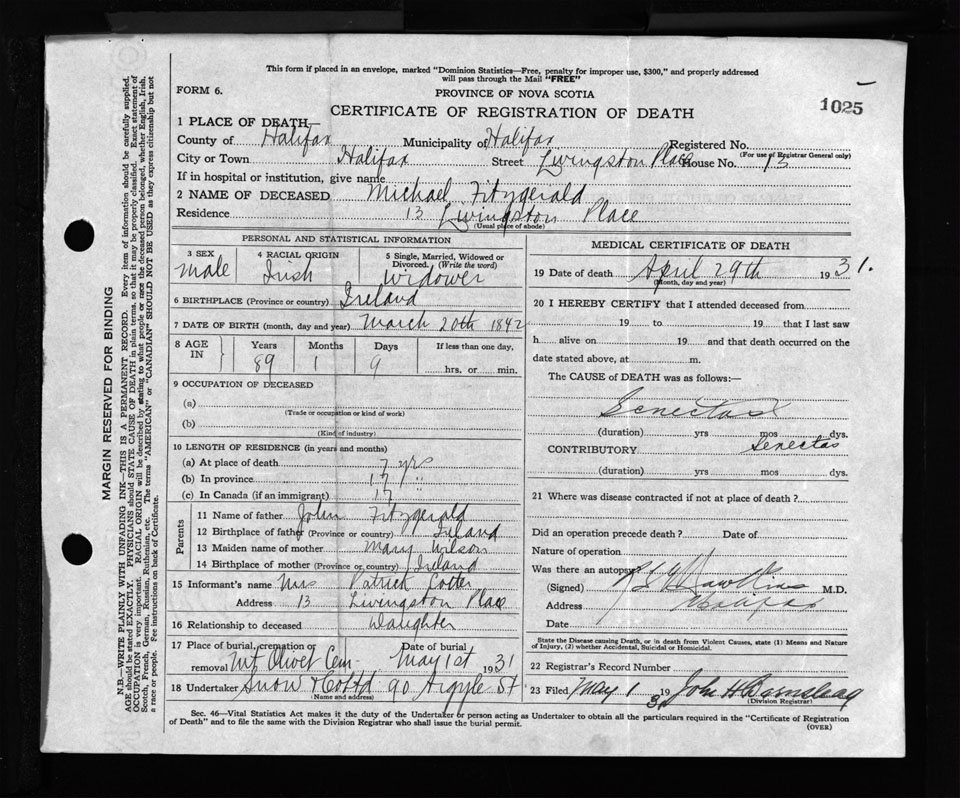 This form if placed in an envelope, marked "Dominion Statistics—Free, penalty for improper use, $300," and properly addressed
will pass through the Mail "FREE"
FORM 6.
PROVINCE OF NOVA SCOTIA
1025
CERTIFICATE OF REGISTRATION OF DEATH
1 PLACE OF DEATH—
County of Halifax Municipality of Halifax Registered No.
(For use of Registrar General only)
City or Town Halifax Street Livingston Place House No. 13
If in hospital or institution, give name
2 NAME OF DECEASED Michael Fitzgerald
Residence 13 Livingston Place
(Usual place of abode)
PERSONAL AND STATISTICAL INFORMATION
3 SEX 4 RACIAL ORIGIN 5 Single, Married, Widowed or
Divorced. (Write the word)
Male Irish Widower
6 BIRTHPLACE (Province or country) Ireland
7 DATE OF BIRTH (month, day and year) March 20th 1842
8 AGE IN Years Months Days If less than one day,
89 1 9 hrs. or min.
9 OCCUPATION OF DECEASED
(a)
(Trade or occupation or kind of work)
(b)
(Kind of industry)
10 LENGTH OF RESIDENCE (in years and months)
(a) At place of death 7 yrs
(b) In province 17 "
(c) In Canada (if an immigrant) 17
Parents
11 Name of father John Fitzgerald
12 Birthplace of father (Province or country) Ireland
13 Maiden name of mother Mary Wilson
14 Birthplace of mother (Province or country) Ireland
15 Informant's name Mrs Patrick Cotter
Address 13 Livingston Place
16 Relationship to deceased Daughter
17 Place of burial, cremation or Date of burial
removal Mt Olivet Cem- May 1st 1931
18 Undertaker Snow & Co Ltd 90 Argyle St
(Name and address)
MEDICAL CERTIFICATE OF DEATH
19 Date of death April 29th 1931.
(Month, day and year)
20 I HEREBY CERTIFY that I attended deceased from
19 to 19 that I last saw
h alive on 19 and that death occurred on the
date stated above, at m.
The CAUSE of DEATH was as follows:—
Senectas
(duration) yrs mos dys.
CONTRIBUTORY Senectas
(duration) yrs mos dys.
21 Where was disease contracted if not at place of death?
Did an operation precede death? Date of
Nature of operation
Was there an autopsy?
(Signed) Hawkins M.D.
Address Halifax
Date
State the Disease causing Death, or in death from Violent Causes, state (1) Means and Nature
of Injury, (2) whether Accidental, Suicidal or Homicidal.
22 Registrar's Record Number
23 Filed May 1 1931 John H Barnstead
(Division Registrar)
Sec. 46—Vital Statistics Act makes it the duty of the Undertaker or person acting as Undertaker to obtain all the particulars required in the "Certificate of Registration
of Death" and to file the same with the Division Registrar who shall issue the burial permit.
(OVER)
MARGIN RESERVED FOR BINDING
N.B.—WRITE PLAINLY WITH UNFADING INK—THIS IS A PERMANENT RECORD. Every item of information should be carefully supplied.
AGE should be stated EXACTLY. PHYSICIANS should STATE CAUSE OF DEATH in plain terms, so that it may be properly classified. Exact statement of
OCCUPATION is very important. RACIAL ORIGIN will be described by stating to what people or race the deceased person belonged, whether English, Irish,
Scotch, French, German, Russian, Ruthenian, etc. The terms "AMERICAN" or "CANADIAN" SHOULD NOT BE USED as they express citizenship but not
a race or people. See instructions on back of Certificate.